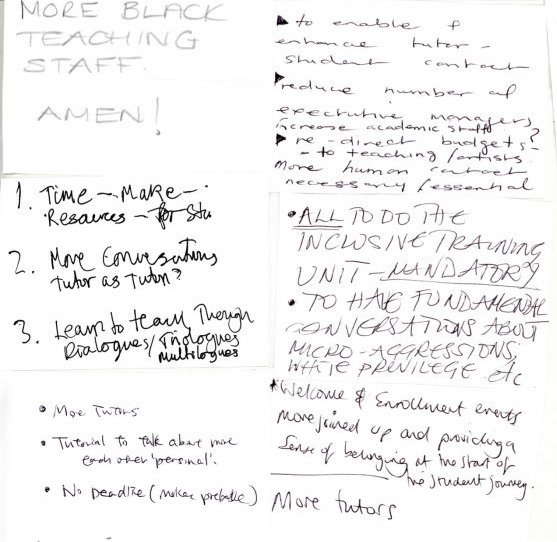 MORE BLACK
TEACHING
STAFF.
AMEN!
▸ to enable &
enhance tutor-
student contact
▸ reduce number of
exectutive managers
increase academic staff?
▸ re-direct budgets-
- to teaching/artists.
More human contact
necessary/essential
1. Time - Make -
Resources - for Stu
2. More Conversations
tutor as tutor?
3. Learn to teach Through
Dialogues/Trialogues
multilogues
• ALL TO DO THE
INCLUSIVE TRAINING
UNIT - MANDATORY
• TO HAVE FUNDAMENTAL
CONVERSATIONS ABOUT
MICRO-AGGRESSIONS;
WHITE PRIVILEGE etc
• More Tutors
• Tutorial to talk about more
each other 'personal'.
• No Deadline (makes
*Welcome & Enrollment events
more joined up and providing a
sense of belonging at the start of
the student journey.
More tutors